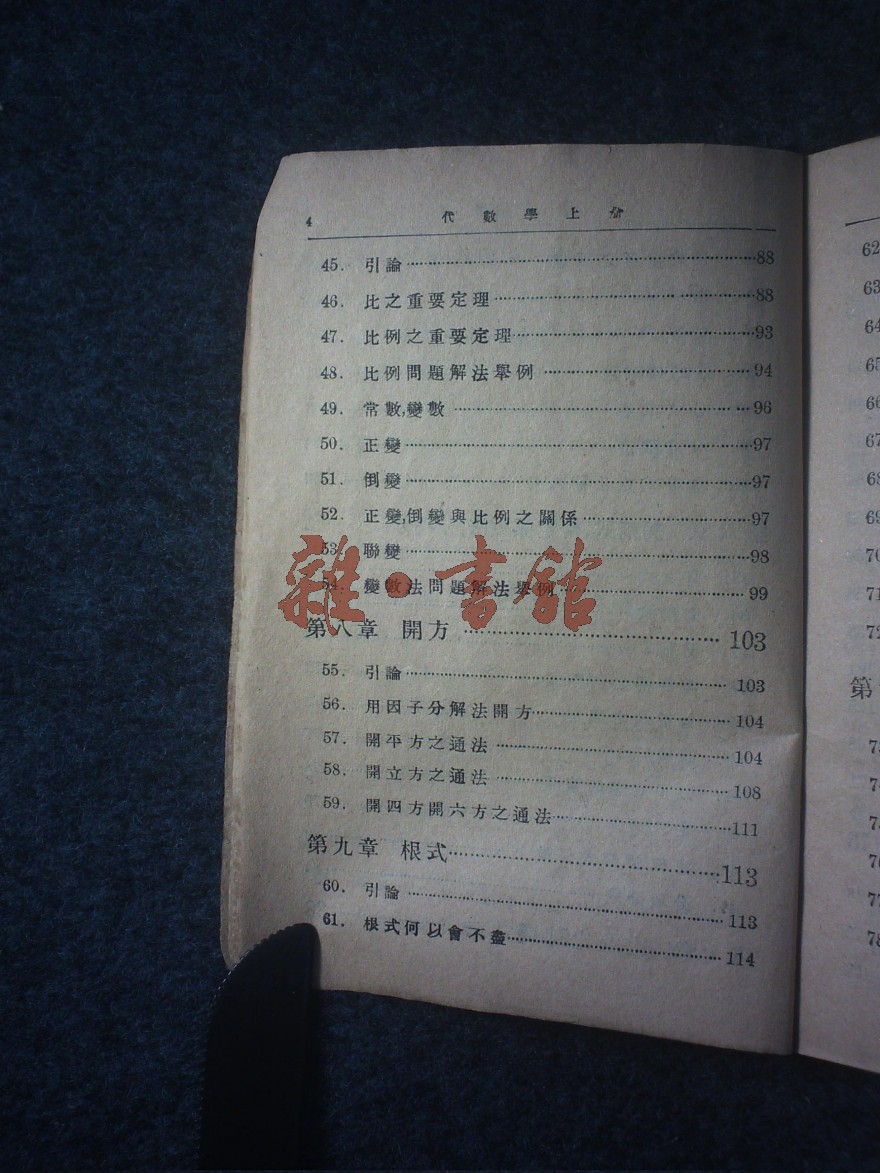 4 代數學上
45. 引論 88
46. 比之重要定理 88
47. 比例之重要定理 93
48. 比例問題解法舉例 94
49. 常數,變數 96
50. 正變 97
51. 倒變 97
52. 正變,倒變與比例之關係 97
53. 聯變 98
54. 變數法問題解法舉例 99
第八章 開方 103
55. 引論 103
56. 用因子分解法開方 104
57. 開平方之通法 104
58. 開立方之通法 108
59. 開四方開六方之通法 111
第九章 根式 113
60. 引論 113
61. 根式何以會不盡 114
雜·書館
62
63
64
65
66
67
68
69
70
71
72
第
74
76
77
78